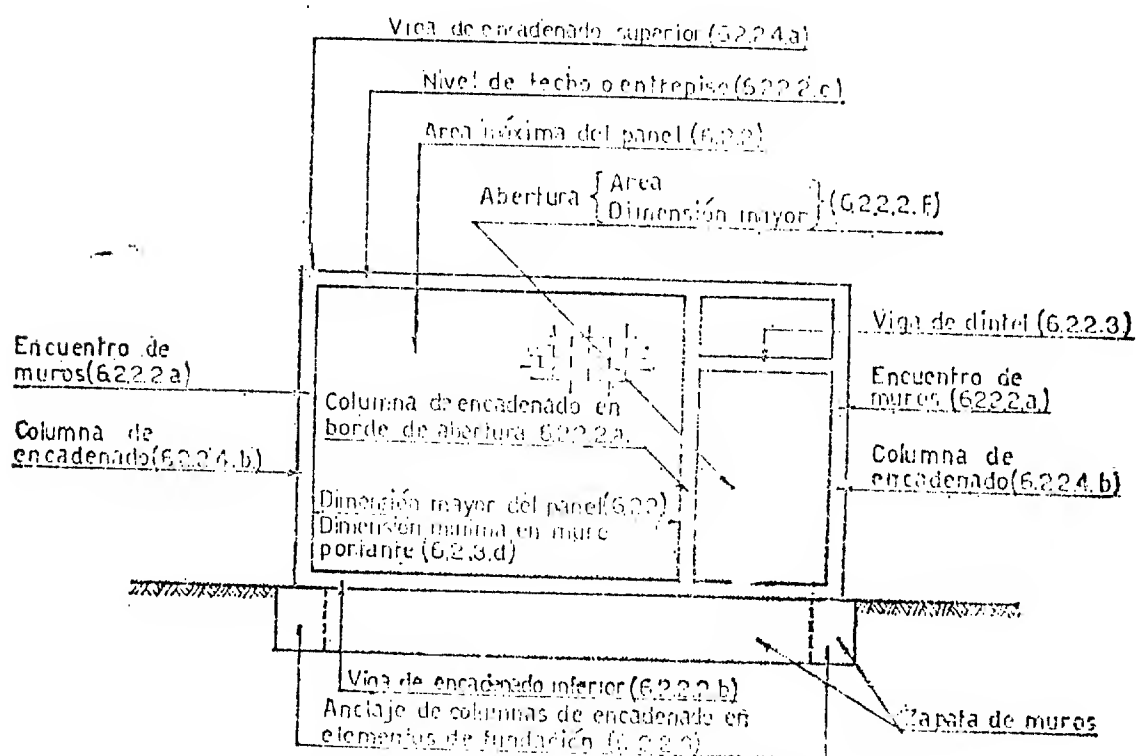 Viga de encadenado superior (6.2.2.4.a)
Nivel de techo o entrepiso (6.2.2.2.c)
Area máxima del panel (6.2.2)
Abertura { Area
Dimensión mayor } (6.2.2.2.F)
Viga de dintel (6.2.2.3)
Encuentro de
muros (6.2.2.2 a)
Columna de
encadenado (6.2.2.4.b)
Columna de encadenado en
borde de abertura 6.2.2.2a.
Encuentro de
muros (6.2.2.2 a.)
Columna de
encadenado (6.2.2.4.b)
Dimensión mayor del panel (6.2.2)
Dimensión mínima en muro
portante (6.2.3.d)
Viga de encadenado inferior (6.2.2.2.b)
Anclaje de columnas de encadenado en
elementos de fundación
Zapata de muros